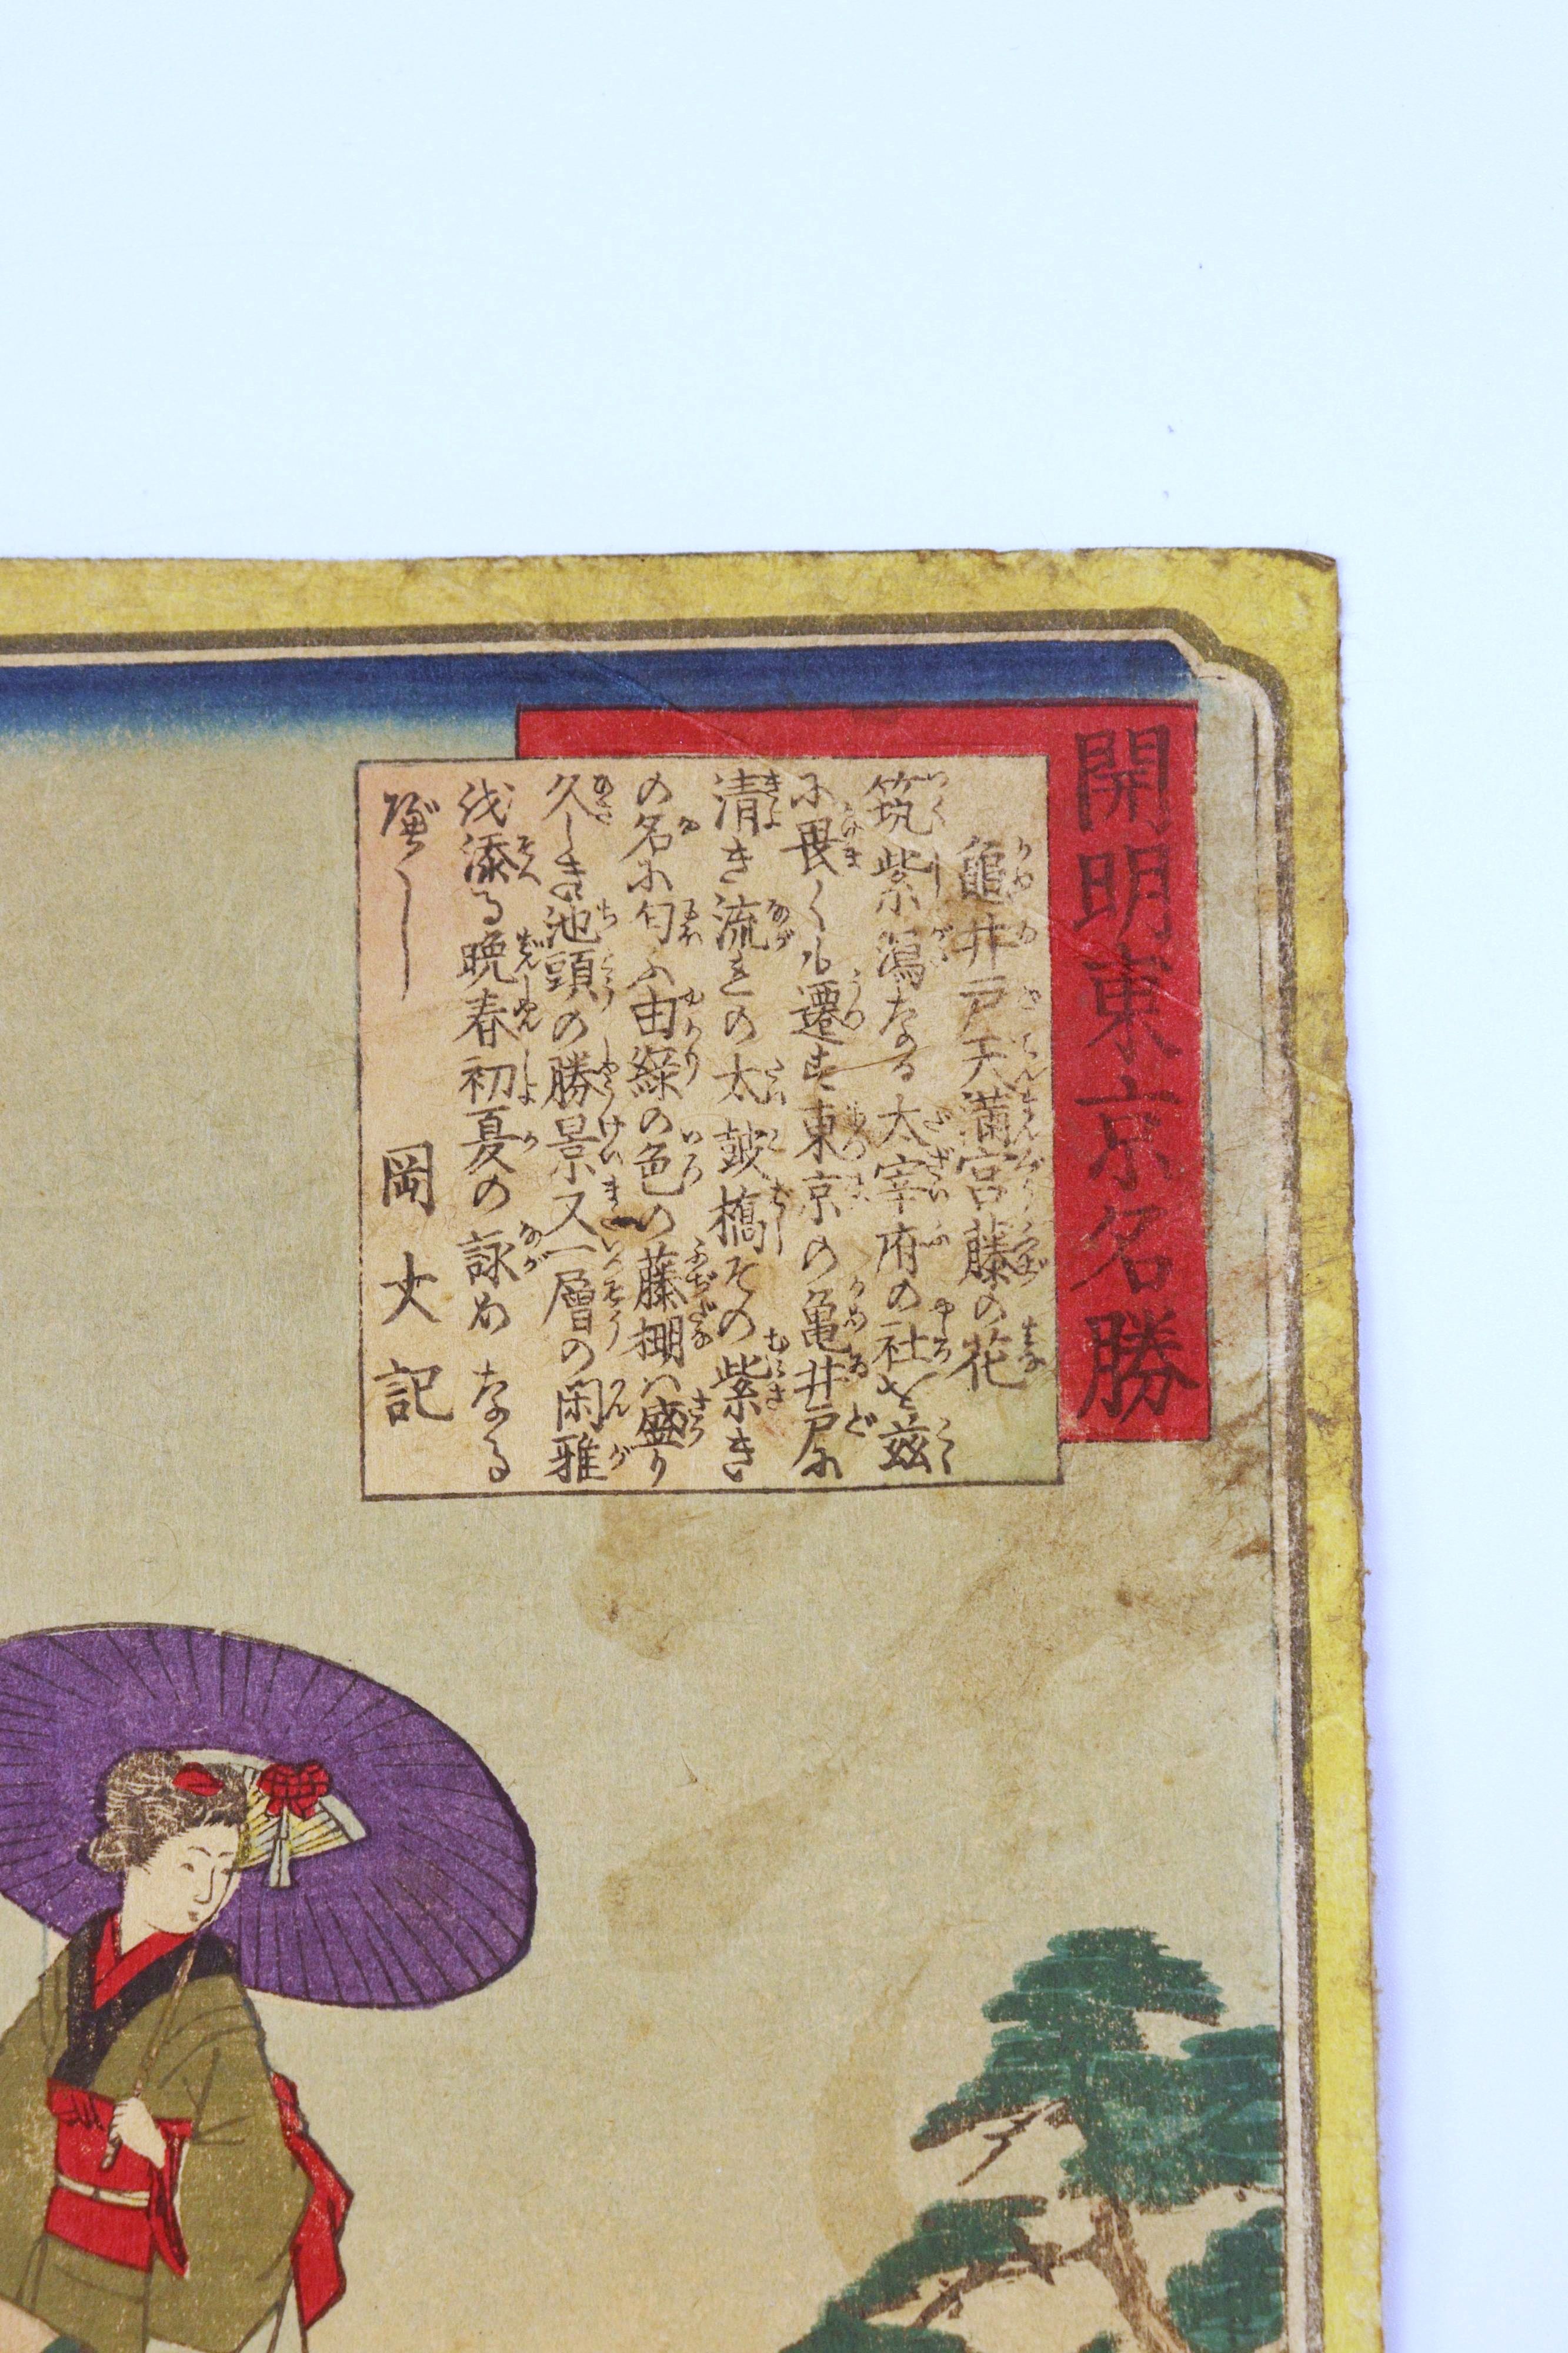 開明東京名勝
龜井戸天満宮藤の花
筑紫潟なる太宰府の社を茲
に畏くも遷す東京の亀井戸に
清き流れの太皷橋その紫き
の名に匂ふ由縁の色の藤棚ハ盛り
久しき池頭の勝景又一層の閑雅
を添る晩春初夏の詠めなる
べし
岡丈記